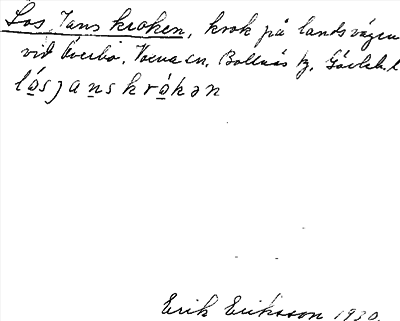 Los Jans kroken, krok på landsvägen
vid Överbo, Voxna sn, Bollnäs tg, Gävleb. l
lo̲sjan̲skrò̲kən
Erik Eriksson 1930.